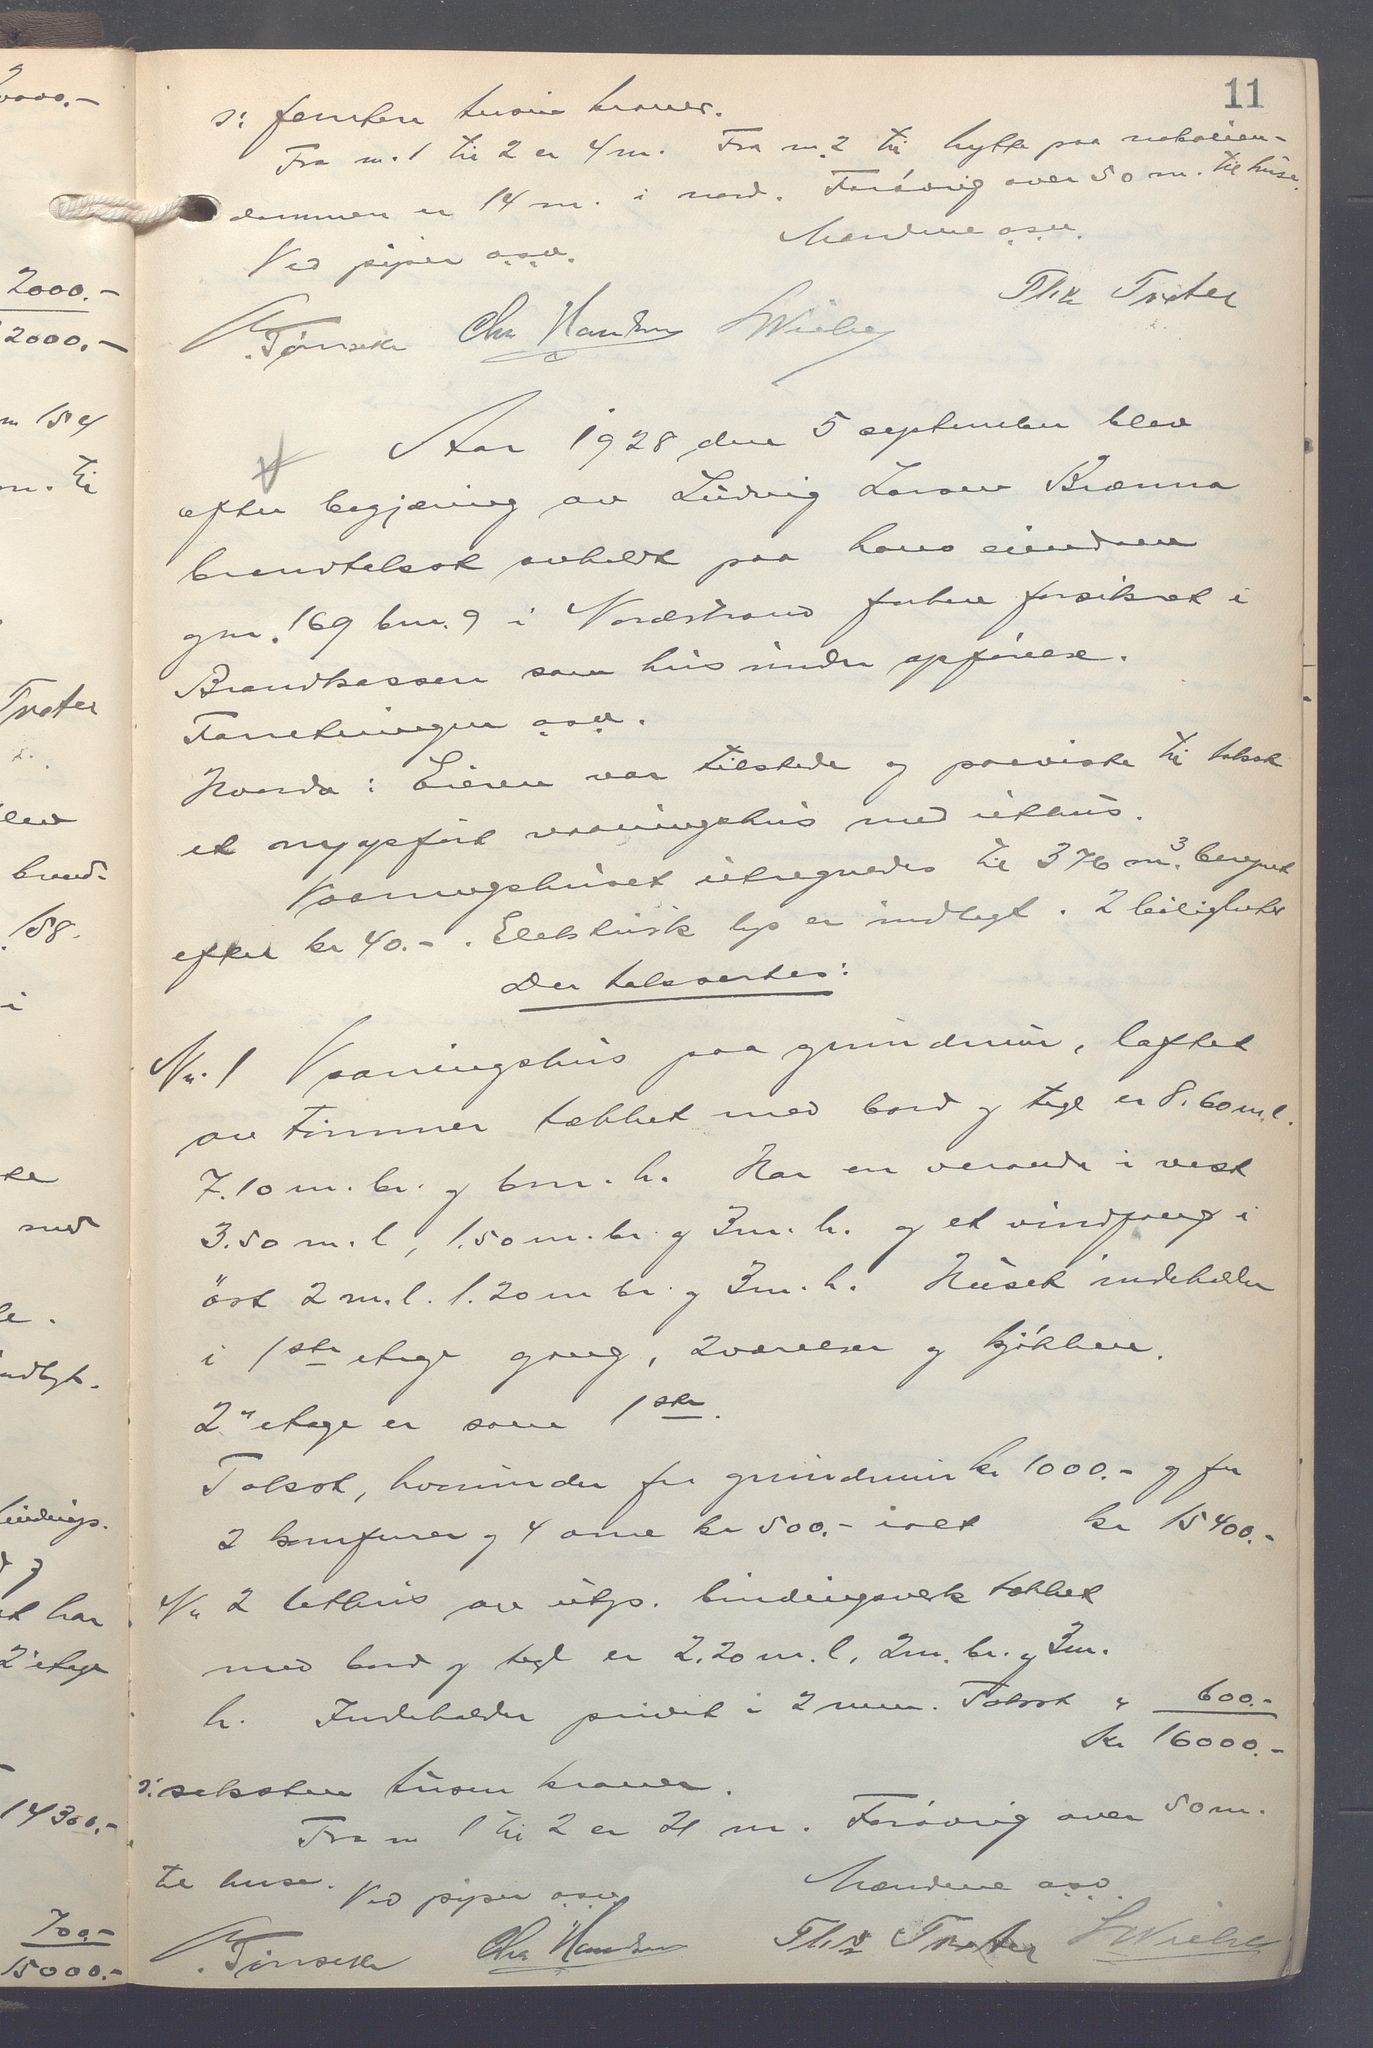 11
s: femten tusin kroner.
Fra nr. 1 til 2 er 4 m. Fra nr. 2 til hytte paa naboeien-
dommen er 14 m. i nord. Forøvrig over 50 m. til huse.
Ved piper o.s.v. Mændene o.s.v.
Tønseth Chr Hansen SWiele Thv Trøter
Aar 1928 den 5 september blev
efter begjæring av Ludvig Larsen Brænna
brandtakst avholdt paa hans eiendom
gnr. 169 bnr. 9 i Nordstrand forhen forsikret i
Brandkassen som hus under opførelse.
Forretningen o.s.v.
Hvorda: Eieren var tilstede og paaviste til takst
et nyopført vaaningshus med uthus.
Vaaningshuset utregnedes til 376 m³. beregnet
efter kr 40.-. Elektrisk lys er indlagt. 2 leiligheter
Der taksertes:
Nr. 1 Vaaningshus paa grundmur, laftet
av tømmer tækket med bord og tegl er 8.60 m. l.
7.10 m. br. og 6 m. h. Har en veranda i vest
3.50 m. l, 1.50 m. br. og 3 m. h. og et vindfang i
øst 2 m. l. 1.20 m br. og 3 m. h. Huset indeholder
i 1ste etage gang, 2 værelser og kjøkken.
2" etage er som 1ste.
Takst, hvorunder for grundmur kr 1000.- og for
2 komfurer og 4 ovne kr 500.- ialt kr 15400.-
Nr 2 Uthus av utp. bindingsverk tækket
med bord og tegl er 2.20 m. l, 2 m. br. og 3 m.
h. Indeholder privet i 2 rum. Takst " 600.-
kr 16000.-
s: seksten tusen kroner.
Fra nr 1 til 2 er 21 m. Forøvrig over 50 m.
til huse. Ved piper o.s.v. Mændene o.s.v.
Tønseth Chr Hansen Thv Trøter SWiele